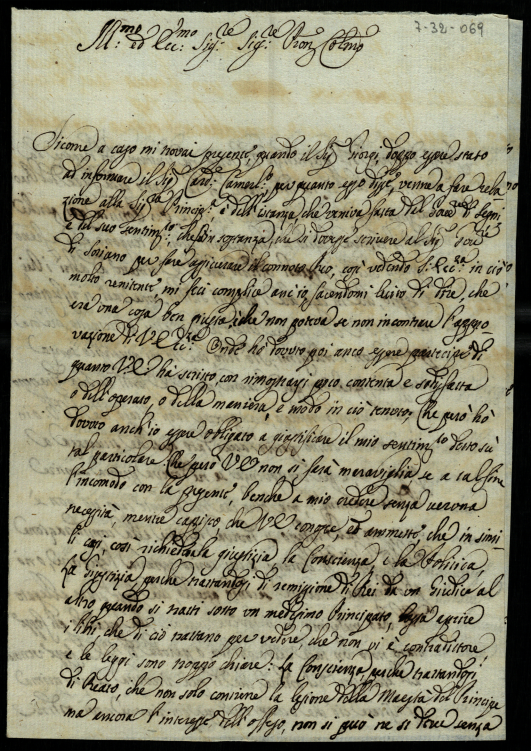 7-32-069
Ill.mo ed Ecc.mo Sig.re Sig.re Pron Col.mo
Sicome a caso mi trovai presente, quando il Sig. Giorgi, doppo essere stato
ad informare il Sig. Card. Camerl.o per quanto esso disse, venne a fare rela
zione alla Sig.ra Princip.a dell'istanza, che veniva fatta del
e del suo sentim.to, che in sostanza che si dovesse scrivere al Sig.
di Soriano per fare assicurare il connotato Reo, così vedendo S. Ecc.za in ciò
molto renitente mi feci complice anc'io facendomi lecito di dire, che
era una cosa ben giusta, e che non poteva se non incontrare l'appro
vazione di V. Ecc.za. Onde hò dovuto poi anco essere partecipe di
quanto V.E. hà scritto, con rimostrarsi poco contenta e sodisfatta
o dell'operato, o della maniera, e modo in ciò tenuto; Che però hò
dovuto anch'io essere obligato a giustificare il mio sentim.to in
tal particolare. Che però V.E. non si farà meraviglia se a tal fine
l'incomodo con la presente, benche a mio credere senza veruna
necessità, mentre capisco che V.E. conosce, ed ammette, che in simi
li casi, così richieda la giustizia, la Conscienza, e la Politica,
La Giustizia, perche trattandosi di remissione di Rei da un Giudice al
altro, quando si tratti sotto un medesimo Principato, basta aprire
i libri che di ciò trattano per vedere, che non vi è contradittore
e le leggi sono troppo chiare: La Conscienza, perche trattandosi
di Reato, che non solo contiene la lesione della Maestà del Principe
ma ancora l'interesse dell'offeso, non si può ne si deve senza